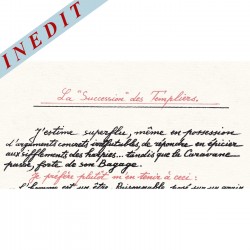 INEDIT
La "Succession" des Templiers.
J'estime superflu, même en possession
d'arguments concrets irréfutables, de répondre en épicier
aux sifflements des harpies... tandis que la Caravane
passe, forte de son Bagage.
Je préfère plutôt m'en tenir à ceci :
l'homme est un être Raisonnable posé sur un